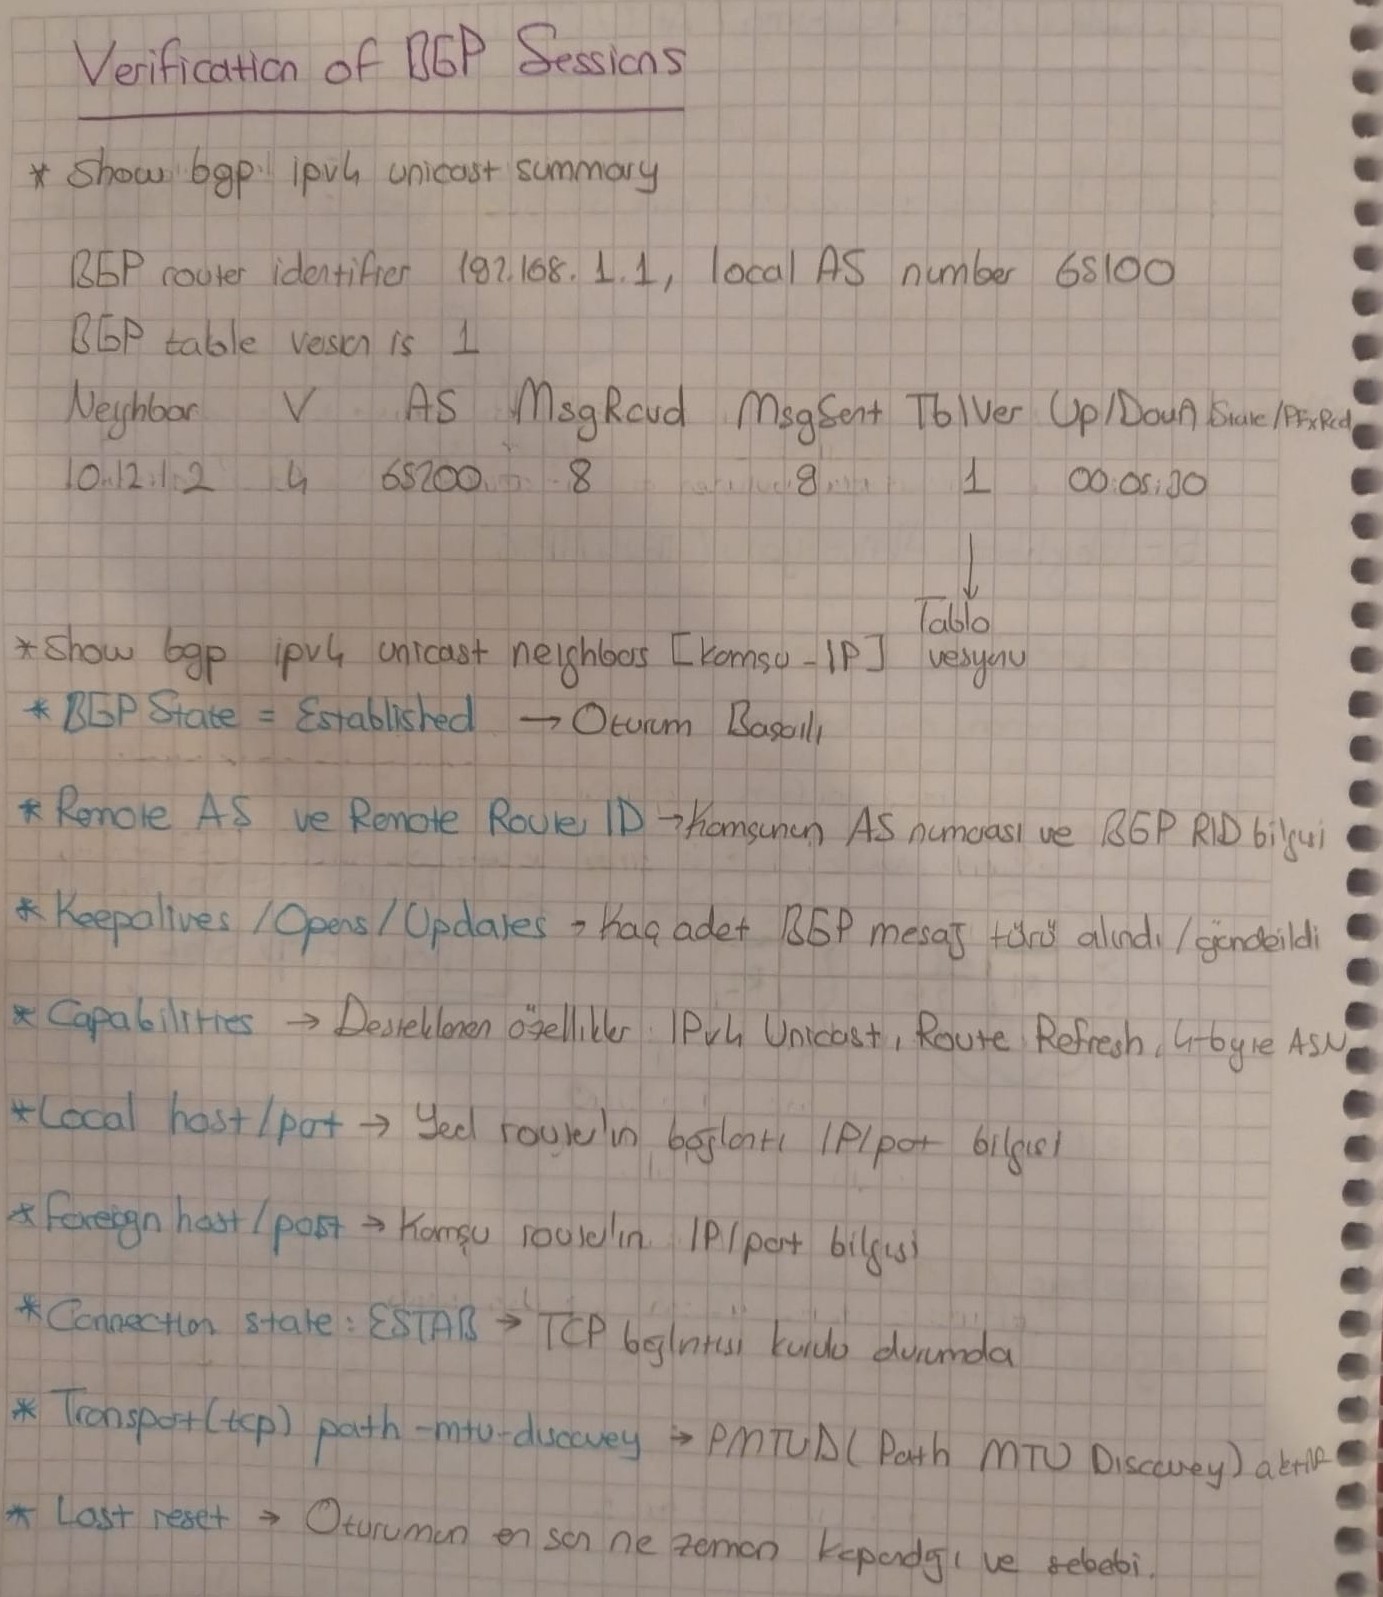 Verification of BGP Sessions
* Show bgp ipv4 unicast summary
BGP router identifier 192.168.1.1, local AS number 65100
BGP table vesıon is 1
Neighbor V AS MsgRcvd MsgSent TblVer Up/Down State/PfxRcd
10.12.1.2 4 65200 8 8 1 00:05:30
↓
Tablo
vesyonu
* Show bgp ipv4 unicast neighbors [komşu-IP]
* BGP State = Established → Oturum Başarılı
* Remote AS ve Remote Router ID → Komşunun AS numarası ve BGP RID bilgisi
* Keepalives/Opens/Updates → Kaç adet BGP mesaj türü alındı/gönderildi
* Capabilities → Desteklenen özellikler IPv4 Unicast, Route Refresh, 4-byte ASN
* Local host/port → Yerel router'ın bağlantı IP/port bilgisi
* Foreign host/port → Komşu router'ın IP/port bilgisi
* Connection state: ESTAB → TCP bağlantısı kurulu durumda
* Transport(tcp) path-mtu-discovery → PMTUD (Path MTU Discovery) aktif
* Last reset → Oturumun en son ne zaman kapandığı ve sebebi.